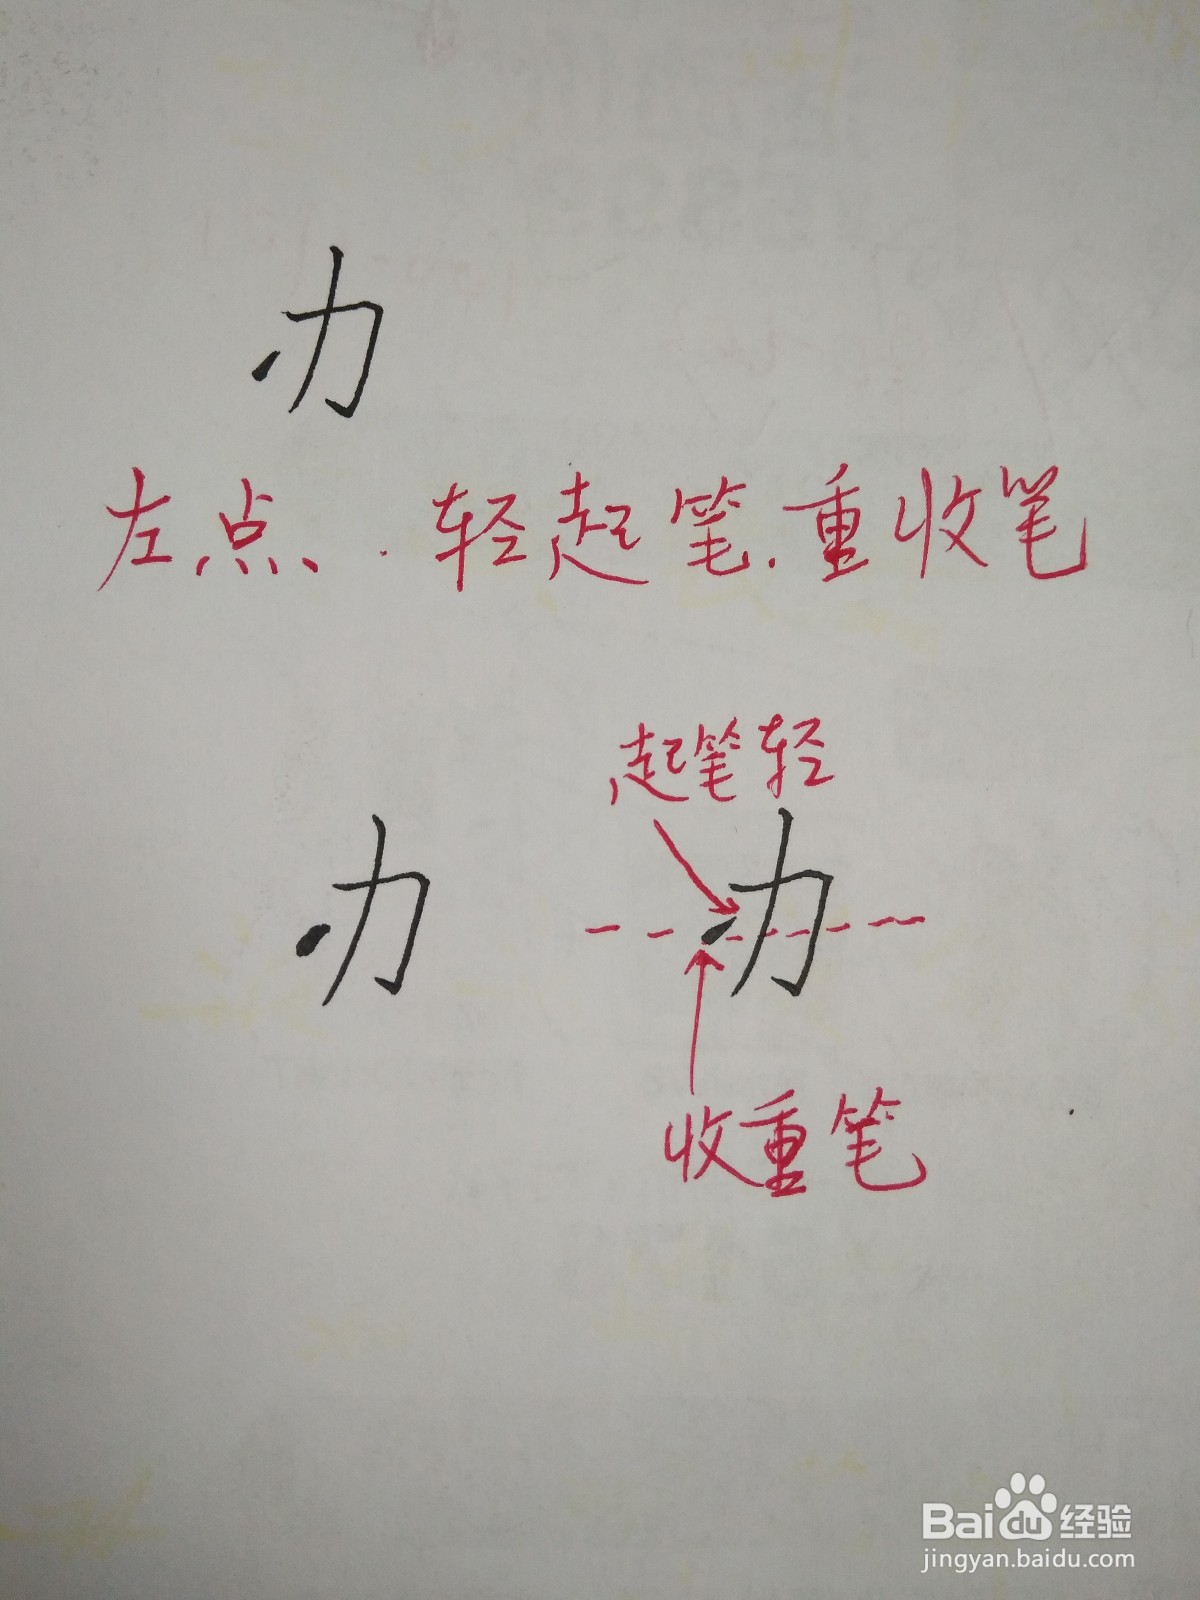 力
左点、. 轻起笔.重收笔
起笔轻
力 力
收重笔
Baidu经验
jingyan.baidu.com